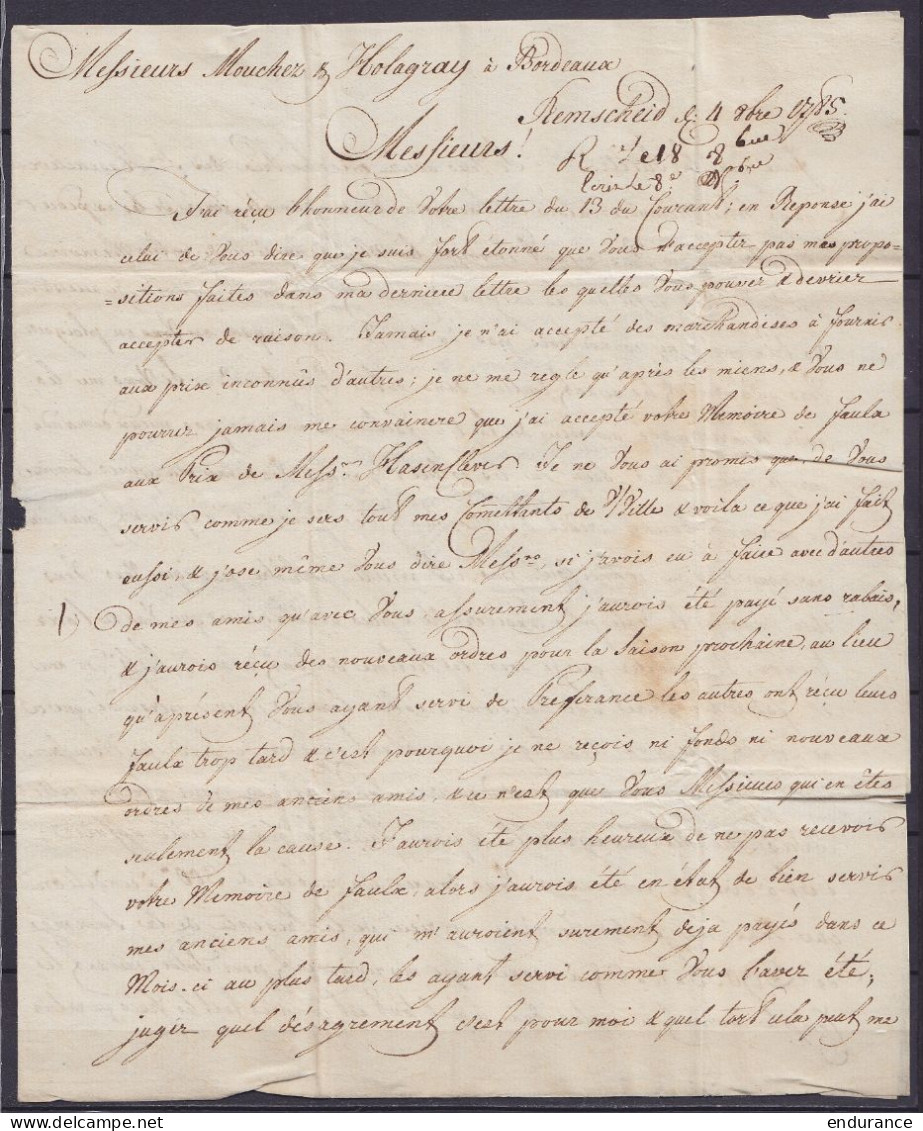 Messieurs Mouchez & Holagray à Bordeaux
Remscheid le 4 8bre 1785.
Messieurs!
J'ai réçu l'honneur de Votre lettre du 13 du Courant; en Reponse j'ai
celui de Vous dire que je suis fort étonné que Vous n'acceptez pas mes propo-
=sitions faites dans ma derniere lettre les quelles Vous pouvez & devriez
accepter de raison. Jamais je n'ai accepté des marchandises à fournir
aux prix inconnûs d'autres; je ne me regle qu'après les miens, & Vous ne
pourrez jamais me convaincre que j'ai accepté votre Memoire de faulx
aux Prix de Mess.rs Hasenclever. Je ne Vous ai promis que de Vous
servir comme je sers tout mes Comettants de V/Ville & voila ce que j'ai fait
aussi, & j'ose même Vous dire Mess.rs, si j'avois eu à faire avec d'autres
de mes amis qu'avec Vous, assurement j'aurois été payé sans rabais,
& j'aurois réçu des nouveaux ordres pour la Saison prochaine, au lieu
qu'àprésent Vous ayant servi de Préferance les autres ont réçu leurs
faulx trop tard & c'est pourquoi je ne reçois ni fonds ni nouveaux
ordres de mes anciens amis, & ce n'est que Vous Messieurs qui en êtes
seulement la cause. J'aurois été plus heureux de ne pas recevoir
votre Memoire de faulx, alors j'aurois été en état de bien servir
mes anciens amis, qui m'auroient surement deja payés dans ce
Mois-ci au plus tard, les ayant servi comme Vous l'avez été,
jugez quel désagrement c'est pour moi & quel tort cela peut me
endurance